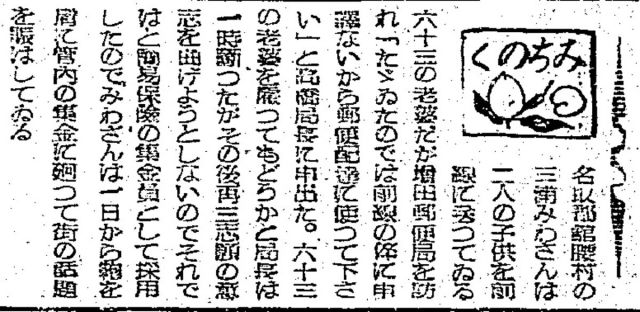 みちのく
名取郡館腰村の
三浦みわさんは
二人の子供を前
線に送つてゐる
六十三の老婆だが増田郵便局を訪
れ「たゞゐたのでは前線の倅に申
譯ないから郵便配達に使つて下さ
い」と高橋局長に申出た。六十三
の老婆を雇つてもどうかと局長は
一時斷つたがその後再三志願の意
志を曲げようとしないのでそれで
はと簡易保險の集金員として採用
したのでみわさんは一日から鞄を
肩に管内の集金に廻つて街の話題
を賑はしてゐる